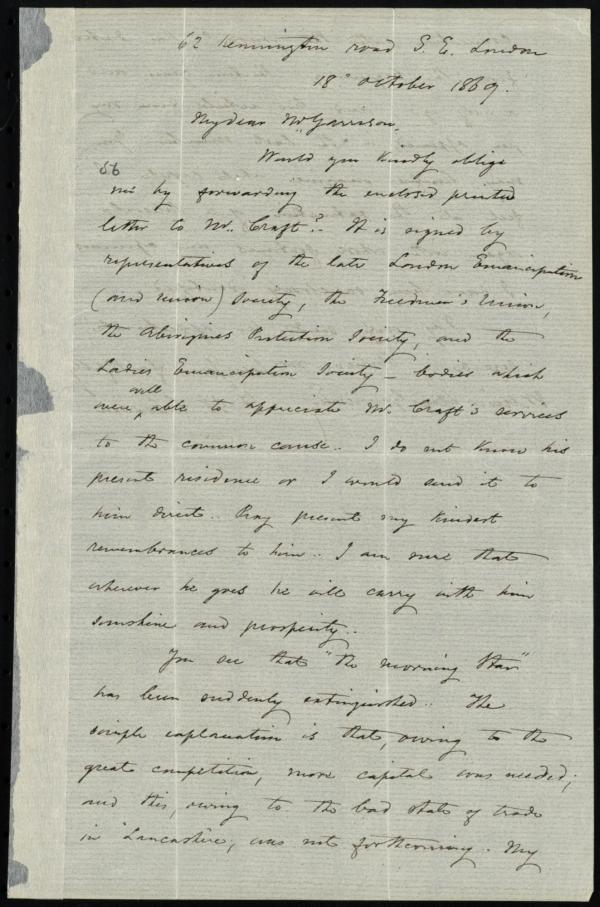 62 Kennington road S. E. London
18th October 1869.
My dear Mr Garrison,
56
Would you kindly oblige
me by forwarding the enclosed printed
letter to Mr. Craft? It is signed by
representatives of the late London Emancipation
(and Union) Society, the Freedmen's Union,
the Aborigines Protection Society, and the
Ladies Emancipation Society - bodies which
were well able to appreciate Mr. Craft's services
to the common cause. I do not know his
present residence or I would send it to
him direct. Pray present my kindest
remembrances to him. I am sure that
wherever he goes he will carry with him
sunshine and prosperity.
You see that "the morning Star"
has been suddenly extinguished. The
simple explanation is that, owing to the
great competition, more capital was needed;
and this, owing to the bad state of trade
in Lancashire, was not forthcoming. My